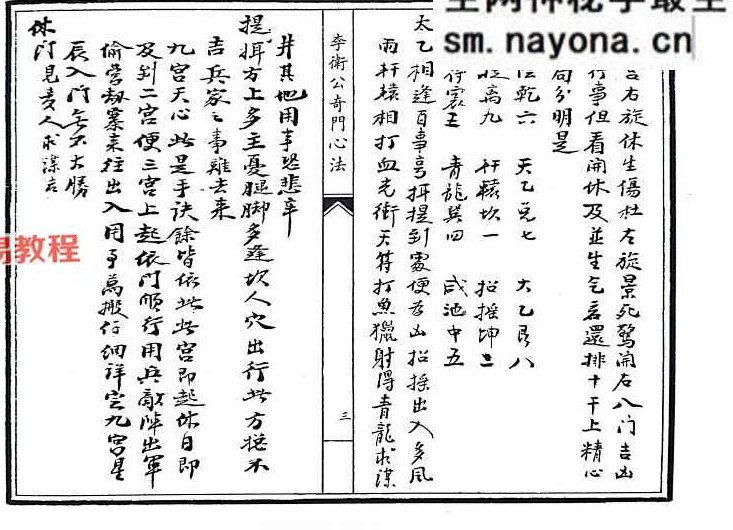 宫右旋休生傷杜左旋景死驚開右八门吉凶
行事但看開休及並生乞言還排十干上精心
局分明是
乾六 天乙兑七 太乙艮八
離九 杆轅坎一 招摇坤二
符震三 青龍巽四 咸池中五
太乙相逢百事亨 提到處便為凶招摇出入多风
雨杆轅相打血光衝天符打魚獵射得青龍求谋
李衛公奇門心法
三
并其地用事恐悲辛
提 方上多主憂腿脚多逢坎人穴出行此方 不
吉兵家之事難去来
九宫天心此是手诀餘皆依此此宫即起休日即
及到二宫便三宫上起依门順行用兵敵陣出軍
偷营劫寨来往出入用事萬般仔细詳定九宫星
辰入门 不大勝
休门見贵人求謀吉
空网神秘学最全
sm.nayona.cn
易教程